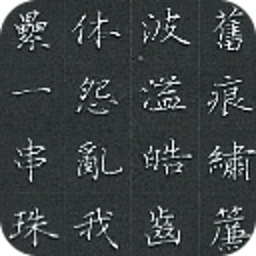 舊痕繡簾
波溢皓齒
休怨亂我
纍一串珠